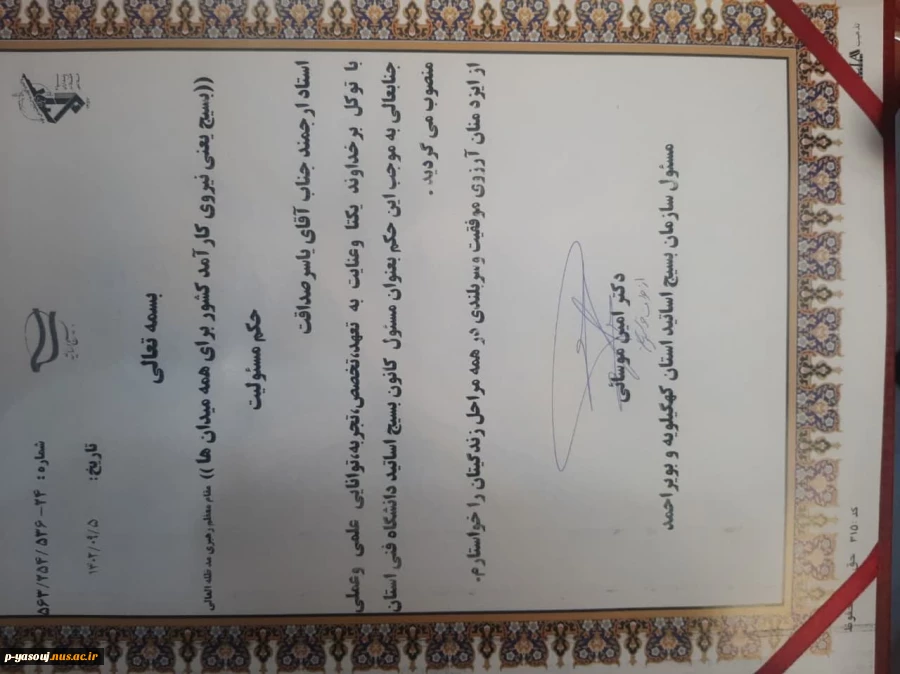 شماره: ۲۴-۵۶۳/۲۵۴/۵۳۶
تاریخ: ۱۴۰۲/۰۹/۵
بسمه تعالی
((بسیج یعنی نیروی کارآمد کشور برای همه میدان ها )) مقام معظم رهبری مد ظله العالی
حکم مسئولیت
استاد ارجمند جناب آقای یاسر صداقت
با توکل برخداوند یکتا وعنایت به تعهد،تخصص،تجربه،توانایی علمی وعملی
جنابعالی به موجب این حکم بعنوان مسئول کانون بسیج اساتید دانشگاه فنی استان
منصوب می گردید .
از ایزد منان آرزوی موفقیت وسربلندی در همه مراحل زندگیتان را خواستارم.
دکتر امین موسائی
مسئول سازمان بسیج اساتید استان کهگیلویه و بویراحمد
کد: ۳۱۵
p-yasouj.nus.ac.ir